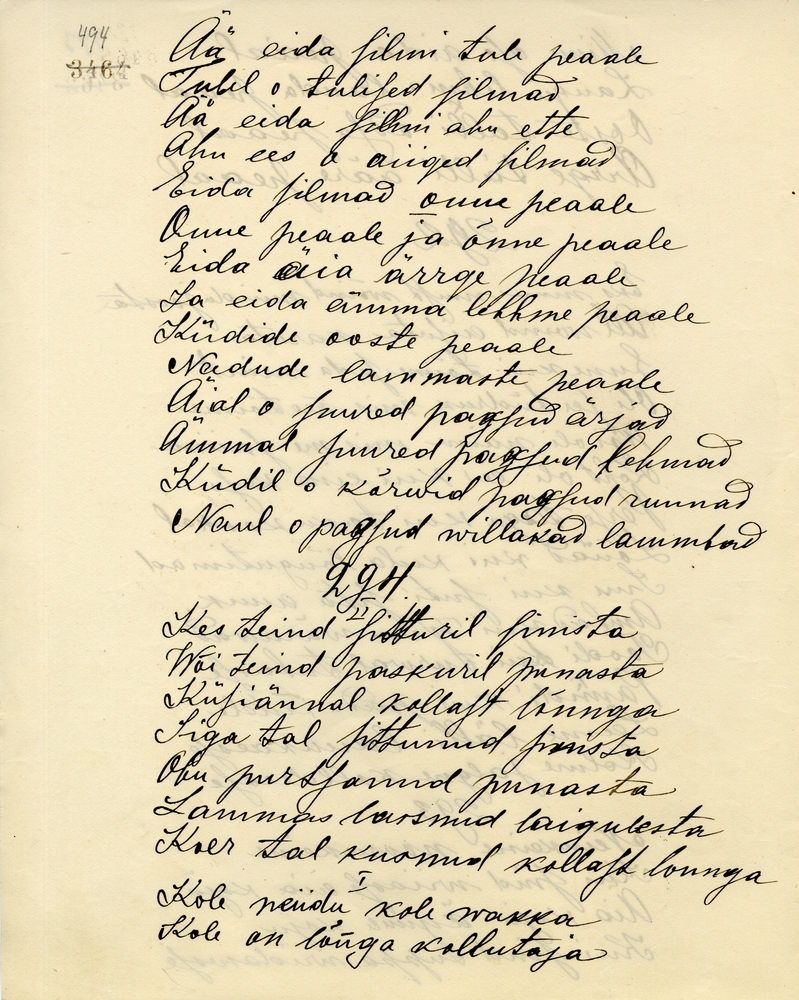 494
3464
Ää eida silmi tule peaale
Tulel o tulised silmad
Ää eida silmi ahu ette
Ahu ees o aiiged silmad
Eida silmad onne peaale
Onne peaale ja õnne peaale
Eida äia ärrge peaale
Ja eida ämma lehhme peaale
Küdide ooste peaale
Naidude lammaste peaale
Äial o suured pagsud ärjad
Ämmal suured pagsud lehmad
Küdil o kõrwid pagsud runnad
Naul o pagsud willakad lammbad
294.
II
Kes teind sitturil sinista
Wõi teind paskuril punasta
Küsiännal kollast lõnnga
Siga tal sittunud sinista
Obu purtsanud punasta
Lammas lasnud laigulesta
Koer tal kusnud kollast lonnga
I
Kole neiidu kole wakka
Kole on lõnga kollutaja